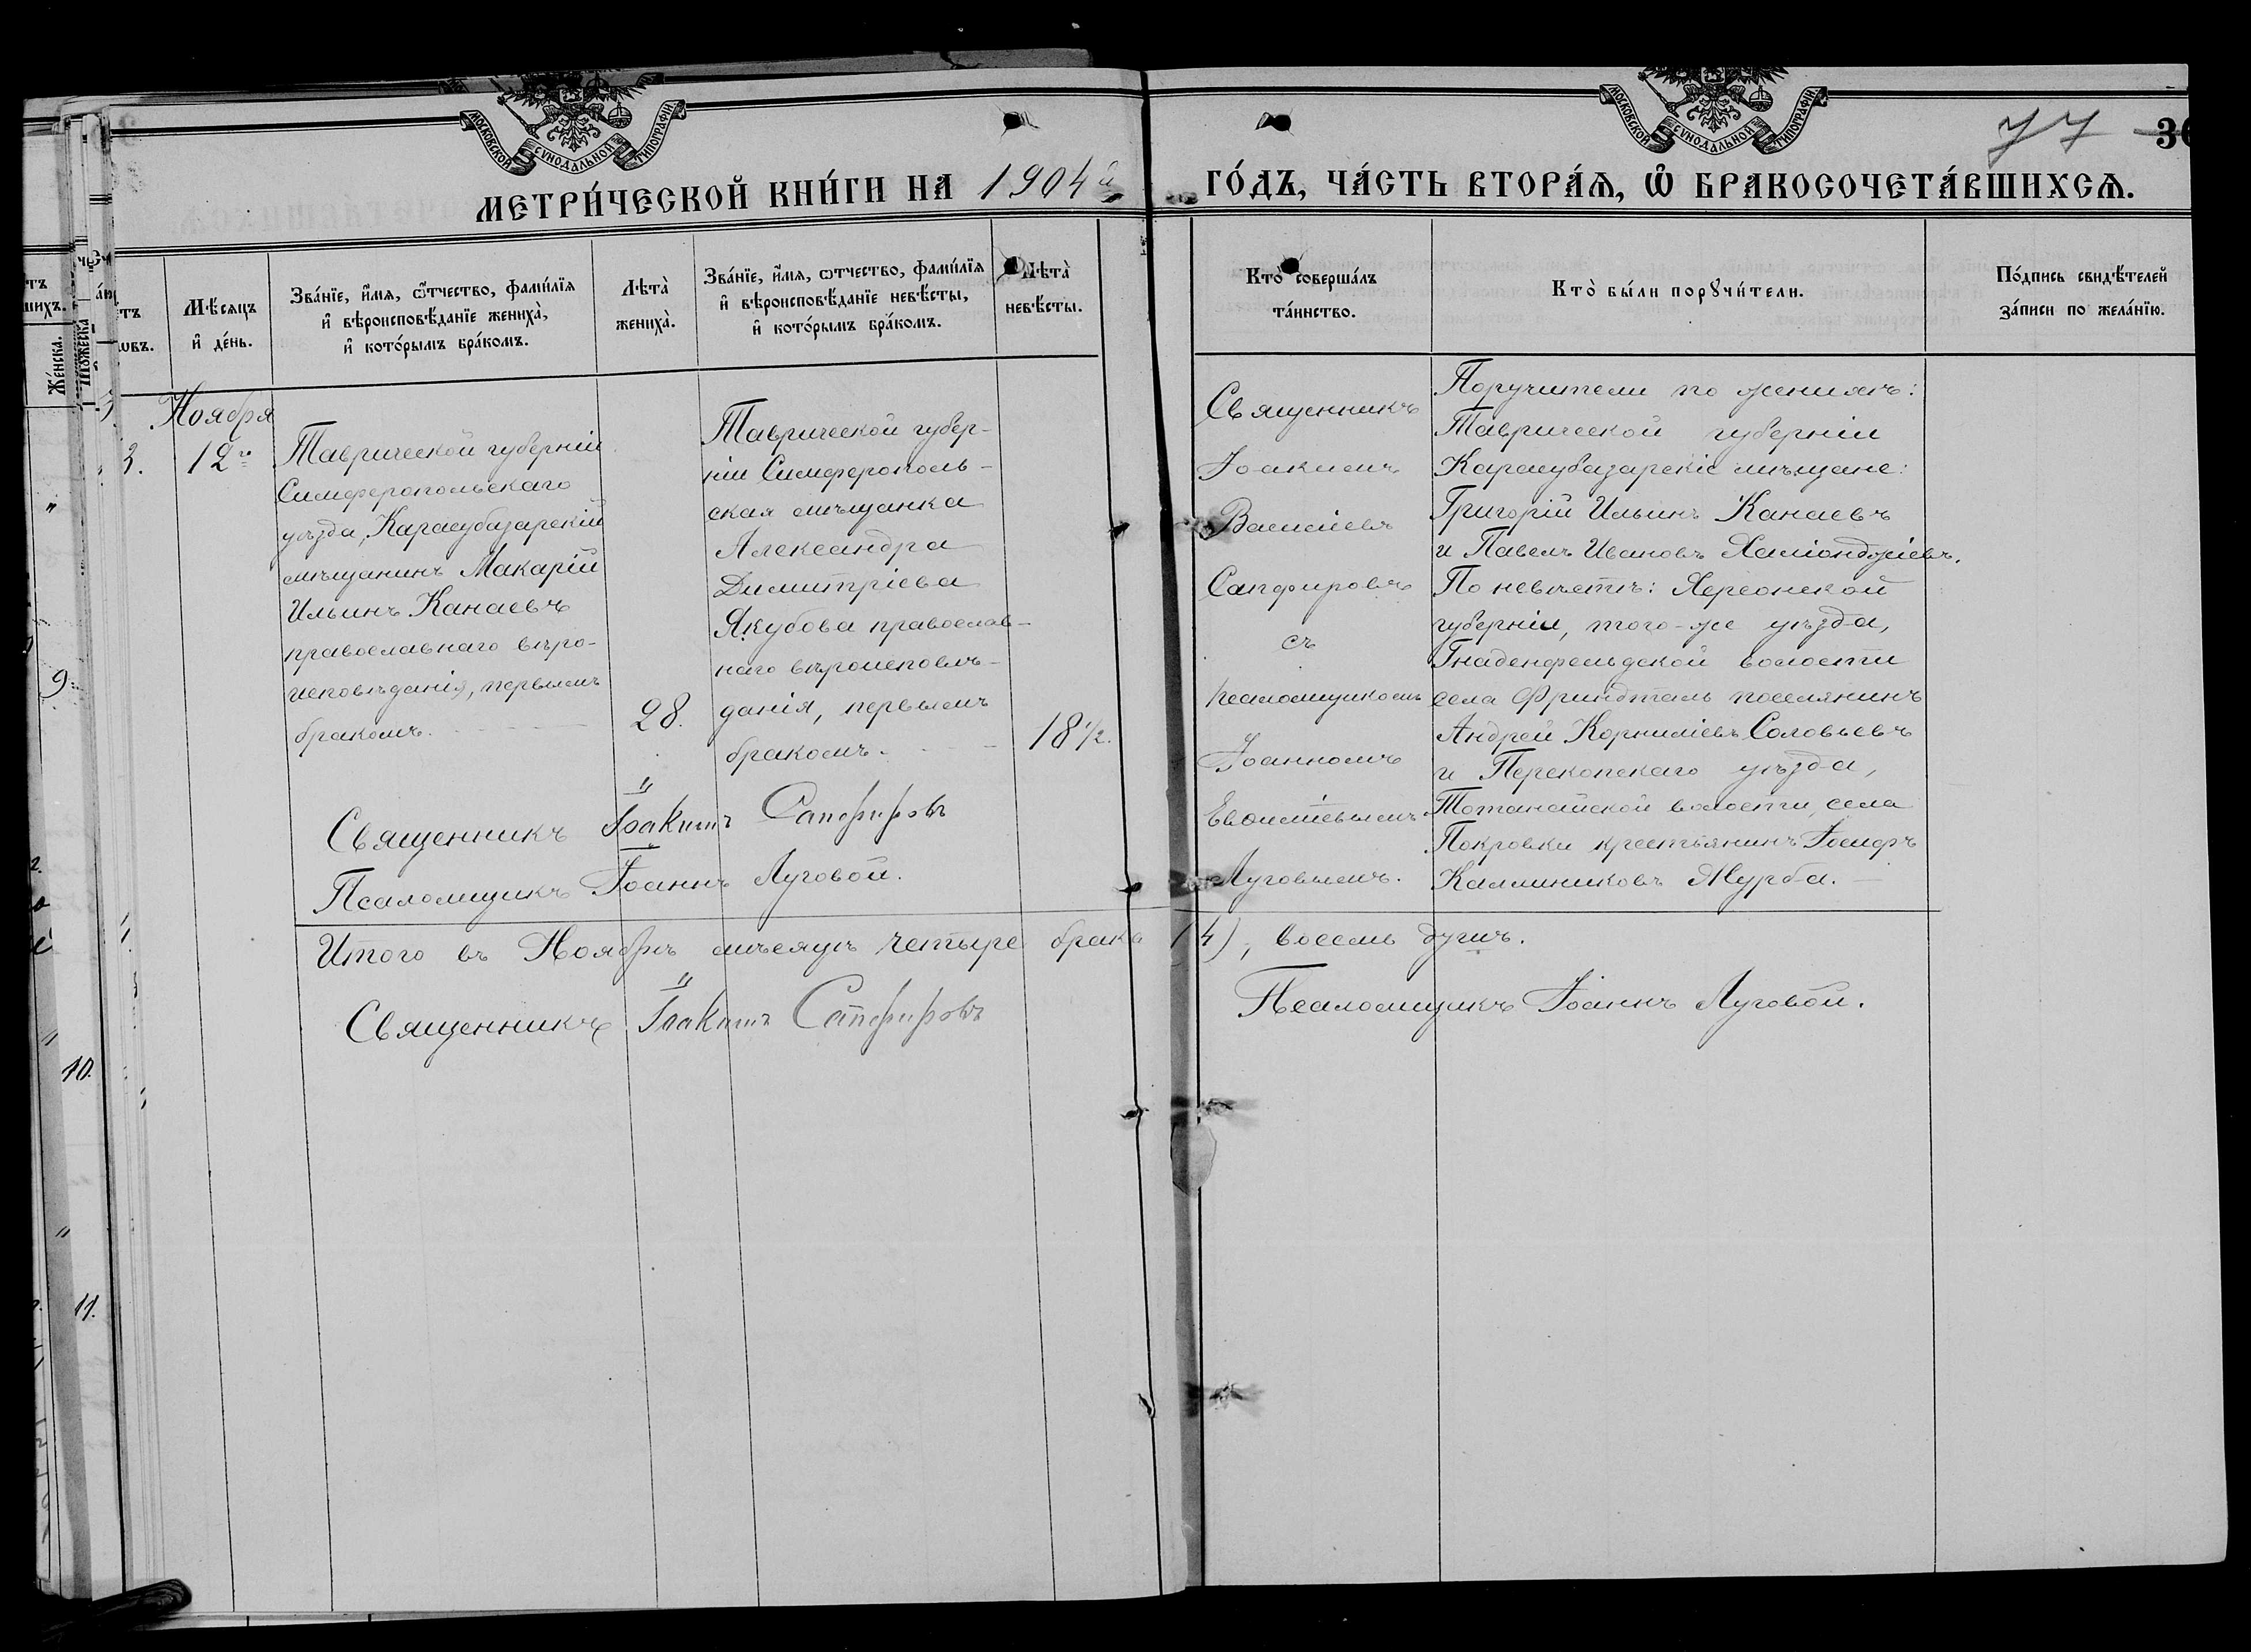 МОСКОВСКОЙ СѴНОДАЛЬНОЙ ТИПОГРАФІИ
МОСКОВСКОЙ СѴНОДАЛЬНОЙ ТИПОГРАФІИ
77
МЕТРИ́ЧЕСКОЙ КНИ́ГИ НА 1904й ГО́ДЪ, ЧА́СТЬ ВТОРА́Ѧ, Ѡ҆ БРАКОСОЧЕТА́ВШИХСѦ.
Мѣ́сяцъ
и҆ де́нь.
Зва́нїе, и҆́мѧ, ѻ҆́тчество, фамилїѧ
и҆ вѣроисповѣ́данїе жениха̀,
и҆ кото́рымъ бра́комъ.
Лѣта̀
жениха̀.
Зва́нїе, и҆́мѧ, ѻ҆тчество, фами́лїѧ
и҆ вѣроисповѣ́данїе невѣ́сты,
и҆ кото́рымъ бра́комъ.
Лѣта̀
невѣ́сты.
Кто̀ соверша́лъ
та́инство.
Кто̀ бы́ли порꙋчи́тели.
По́дпись свидѣ́телей
за́писи по жела́нїю.
Же́нска.
3.
Ноября
12го
Таврической губерніи
Симферопольскаго
уѣзда, Карасубазарскій
мѣщанинъ Макарій
Ильинъ Канаевъ
православнаго вѣро-
исповѣданія, первымъ
бракомъ.
28.
Таврической губер-
ніи Симферополь-
ская мѣщанка
Александра
Димитріева
Якубова православ-
наго вѣроисповѣ-
данія, первымъ
бракомъ.
18 1/2.
Священникъ
Іоакимъ
Василіевъ
Сапфировъ
съ
псаломщикомъ
Іоанномъ
Луговымъ.
Поручители по женихѣ:
Таврической губерніи
Карасубазарскіе мѣщане:
Григорій Ильинъ Канаевъ
и Павелъ Ивановъ
По невѣстѣ: Херсонской
губерніи, того-же уѣзда,
Гнаденфельдской волости
села Фриндталь поселянинъ
Андрей Корниліевъ Соловьевъ
и Перекопскаго уѣзда,
волости, села
Покровки крестьянинъ Іосифъ
Каллиниковъ Журба.
Священникъ Іоакимъ Сапфировъ
Псаломщикъ Іоаннъ Луговой.
Итого въ Ноябрѣ мѣсяцѣ четыре брака (4), восемь душъ.
Священникъ Іоакимъ Сапфировъ
Псаломщикъ Іоаннъ Луговой.
9.
10.
11.